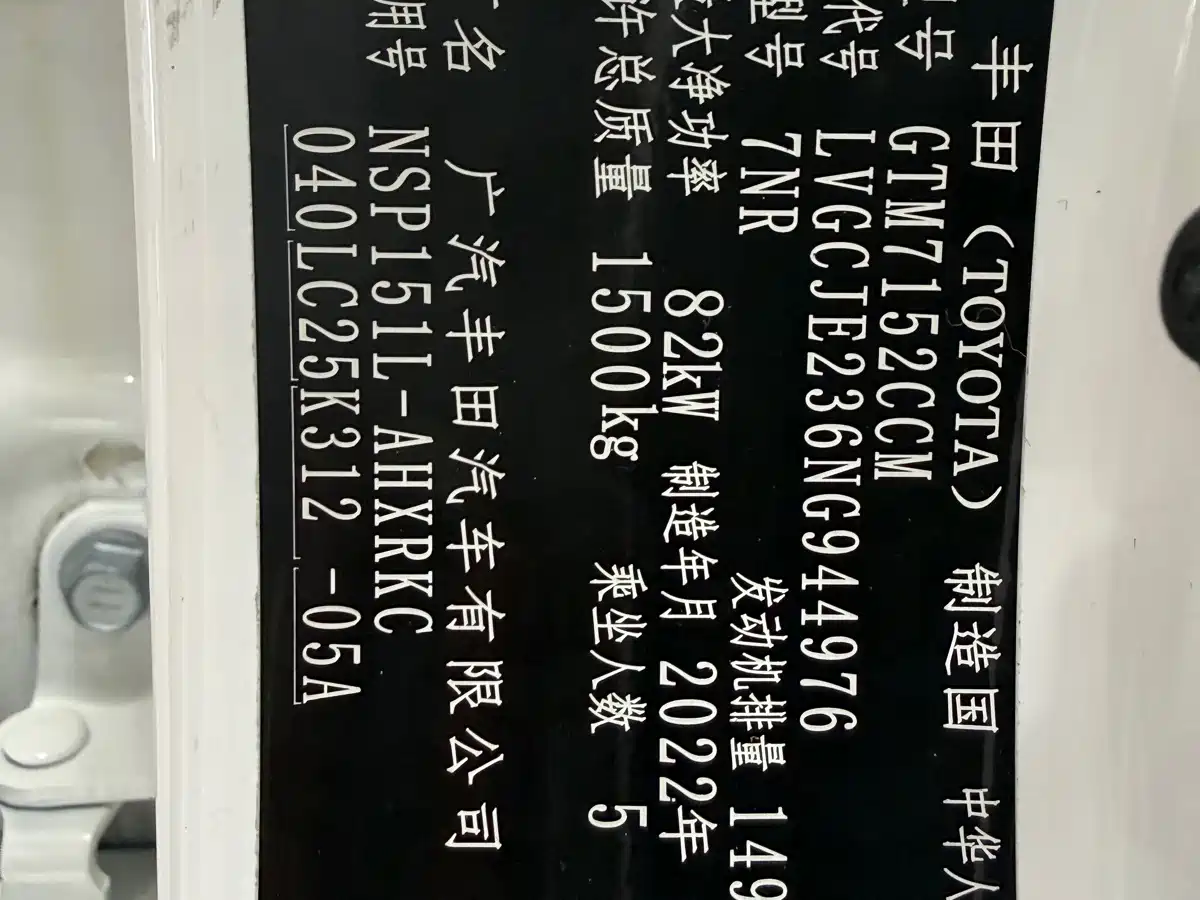 丰田（TOYOTA） 制造国 中华人
型号 GTM7152CCM
代号 LVGCJE236NG944976
型号 7NR 发动机排量 149
大净功率 82kW 制造年月 2022年
许总质量 1500kg 乘坐人数 5
名 广汽丰田汽车有限公司
用号 NSP151L-AHXRKC
040LC25K312 -05A